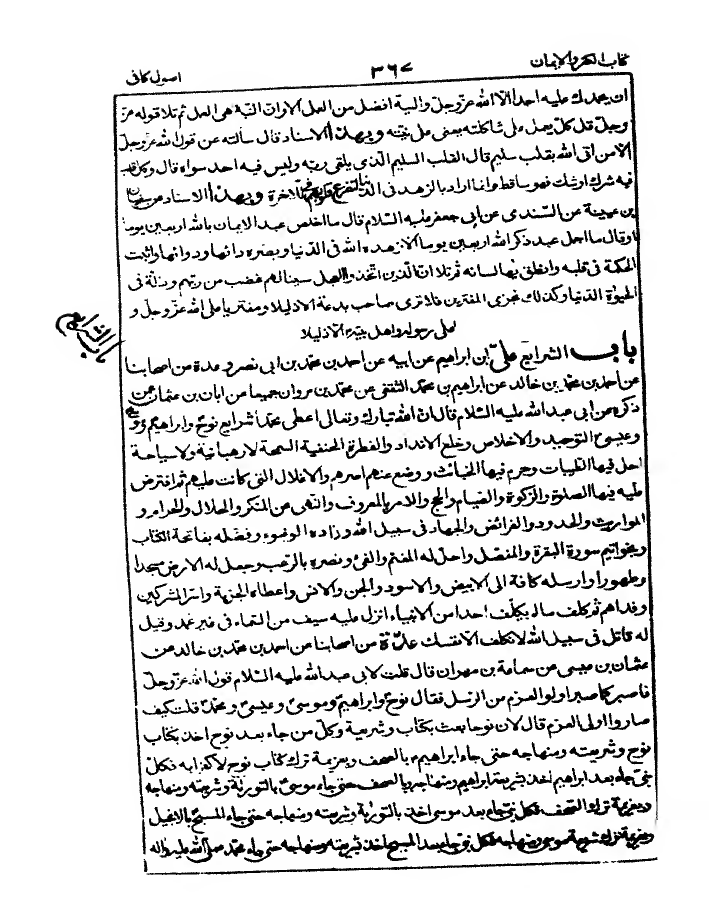 كتاب الكفر والايمان ٣٦٧ اصول كافى
ان يحمدك عليه احد الا الله عزّ وجلّ والنية افضل من العمل الا وان النيّة هى العمل ثم تلا قوله عزّ
وجلّ قل كلّ يعمل على شاكلته يعنى على نيّته وبهذا الاسناد قال سالته عن قول الله عزّ وجلّ
الا من اتى الله بقلب سليم قال القلب السليم الّذى يلقى ربّه وليس فيه احد سواه قال وكل قلب
فيه شرك اوشك فهو ساقط وانّما اراد بالزهد فى الدّنيا لتفرغ قلوبهم للاخرة وبهذا الاسناد عن سفيان
بن عيينة عن السّندى عن ابى جعفر عليه السّلام قال ما اخلص عبد الايمان بالله اربعين يوما
او قال ما اجمل عبد ذكر الله اربعين يوما الا زهده الله فى الدّنيا وبصّره دائها ودوائها واثبت
الحكمة فى قلبه وانطق بها لسانه ثم تلا انّ الّذين اتّخذوا العجل سينالهم غضب من ربّهم وذلّة فى
الحيوة الدّنيا وكذلك نجزى المفترين فلا ترى صاحب بدعة الا ذليلا ومفتريا على الله عزّ وجلّ و
على رسوله واهل بيته الا ذليلا
باب الشرايع علىّ بن ابراهيم عن ابيه عن احمد بن محمّد بن ابى نصر وعدة من اصحابنا
باب الشرايع
عن احمد بن محمّد بن خالد عن ابراهيم بن محمّد الثقفى عن محمّد بن مروان جميعا عن ابان بن عثمان عمن
ذكره عن ابى عبد الله عليه السّلام قال انّ الله تبارك وتعالى اعطى محمّدا شرايع نوح وابراهيم وموسى
وعيسى التوحيد والاخلاص وخلع الانداد والفطرة الحنفية السمحة لا رهبانية ولا سياحة
احل فيها الطيبات وحرم فيها الخبائث ووضع عنهم اصرهم والاغلال الّتى كانت عليهم ثم افترض
عليه فيها الصلوة والزكوة والصّيام والحج والامر بالمعروف والنّهى عن المنكر والحلال والحرام و
المواريث والحدود والفرائض والجهاد فى سبيل الله وزاده الوضوء وفضله بفاتحة الكتاب
وبخواتيم سورة البقرة والمفصّل واحلّ له المغنم والفىء ونصره بالرّعب وجعل له الارض مسجدا
وطهورا وارسله كافة الى الابيض والاسود والجن والانس واعطاه الجزية واسر المشركين
وفداهم ثم كلف ما لم يكلّف احدا من الانبياء انزل عليه سيف من السّماء فى غير غمد وقيل
له قاتل فى سبيل الله لا تكلف الا نفسك عدّة من اصحابنا عن احمد بن محمّد بن خالد عن
عثمان بن عيسى عن سماعة بن مهران قال قلت لابى عبد الله عليه السّلام قول الله عزّ وجلّ
فاصبر كما صبر اولو العزم من الرّسل فقال نوح وابراهيم وموسى وعيسى ومحمّد قلت كيف
صاروا اولى العزم قال لان نوحا بعث بكتاب وشريعة وكلّ من جاء بعد نوح اخذ بكتاب
نوح وشريعته ومنهاجه حتى جاء ابراهيم بالصحف وبعزيمة ترك كتاب نوح لا كفرا به فكلّ
نبىّ جاء بعد ابراهيم اخذ بشريعة ابراهيم ومنهاجه وبالصحف حتى جاء موسى بالتورية وشريعته ومنهاجه
وبعزيمة ترك الصّحف فكلّ نبىّ جاء بعد موسى اخذ بالتورية وشريعته ومنهاجه حتى جاء المسيح بالانجيل
وبعزيمة ترك شريعة موسى ومنهاجه فكلّ نبىّ جاء بعد المسيح اخذ بشريعته ومنهاجه حتى جاء محمّد صلّى الله عليه واله